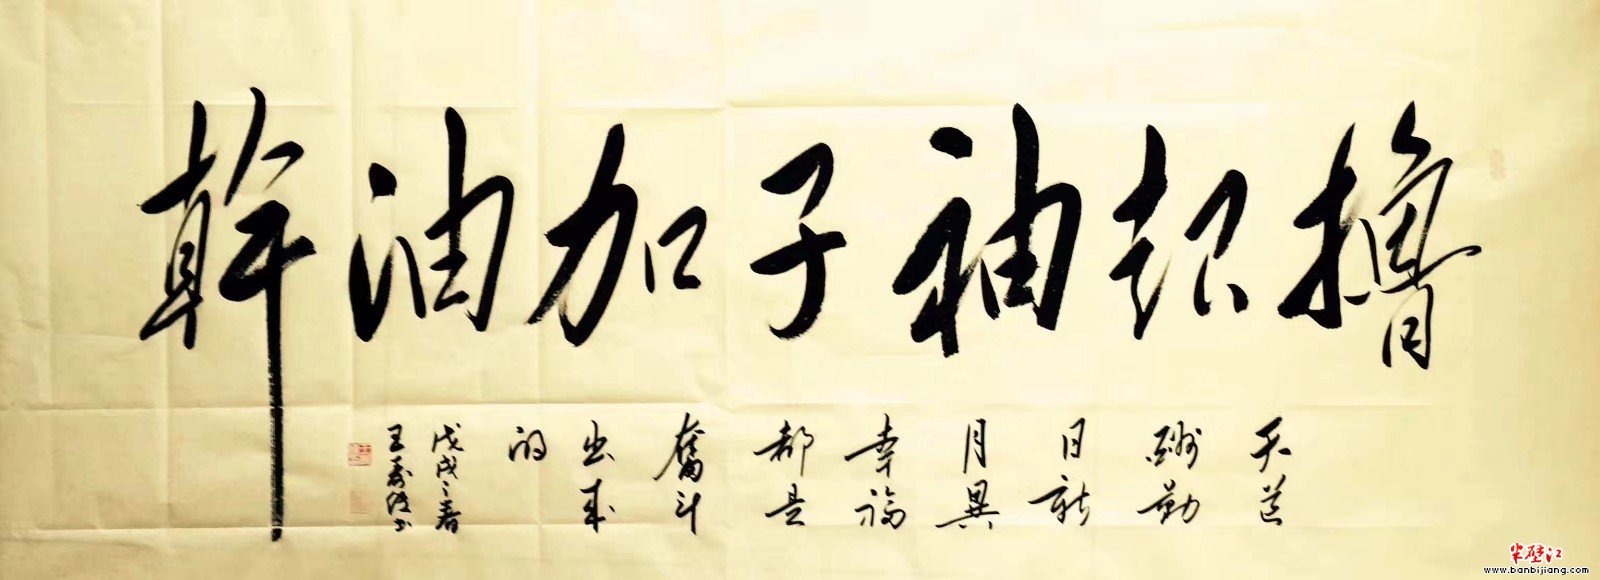 擼起袖子加油幹
天道
酬勤
日新
月異
幸福
都是
奮斗
出来
的
戊戌之春
王书
半壁江
www.banbijiang.com